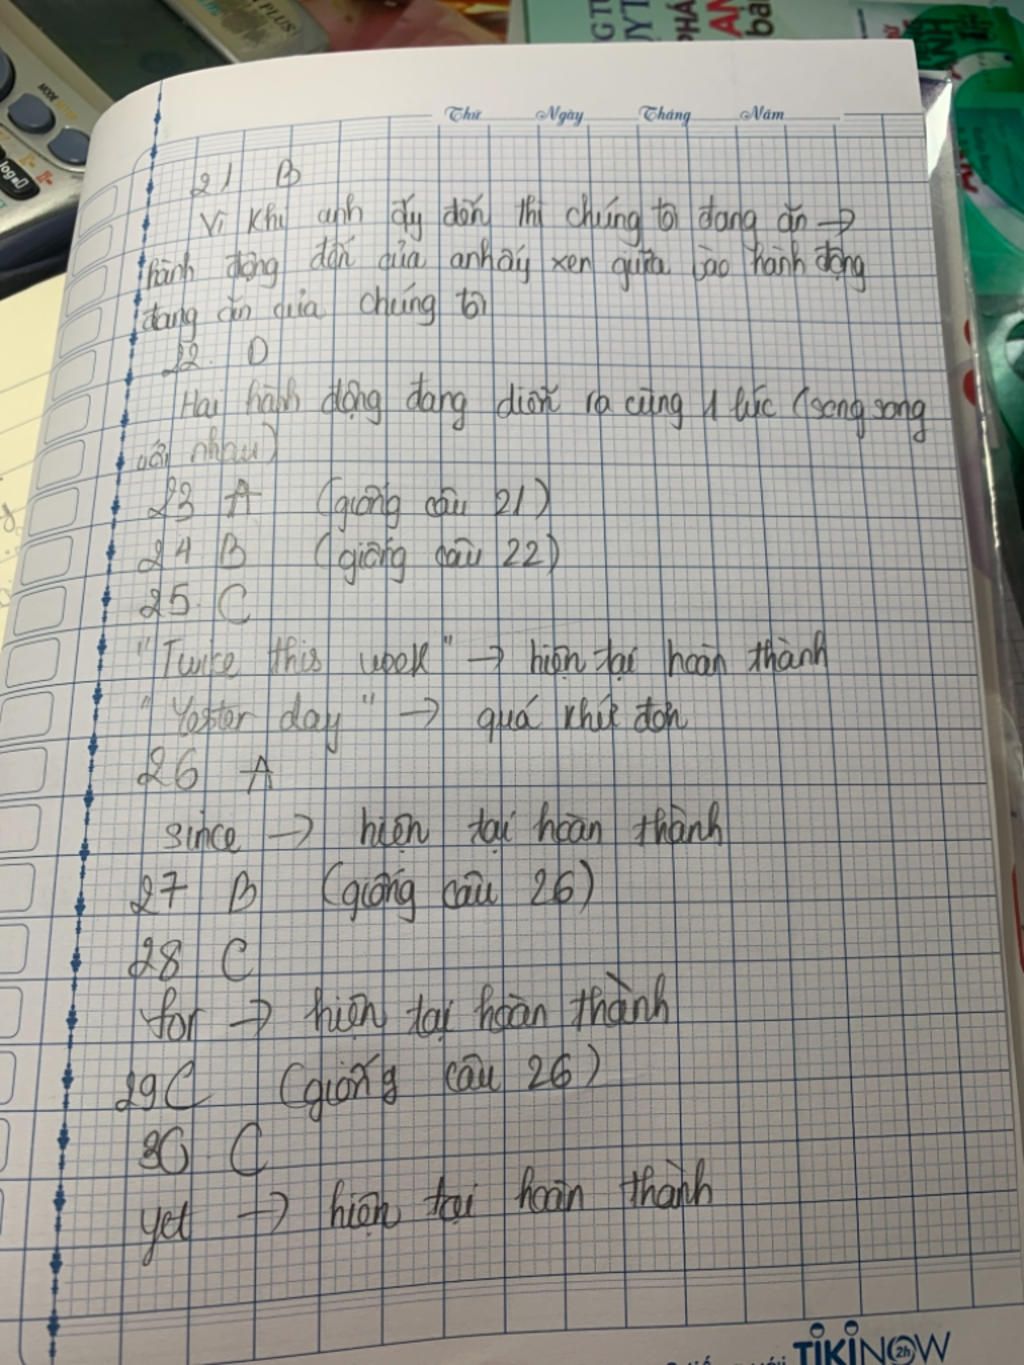 PLUS
MODE
log
G T
UYT
PHÁ
AN
ba
Thứ Ngày Tháng Năm
21 B
Vì khi anh ấy đến thì chúng tôi đang ăn →
hành động đến của anh ấy xen giữa vào hành động
đang ăn của chúng tôi
22. D
Hai hành động đang diễn ra cùng 1 lúc (song song
với nhau)
23 A (giống câu 21)
24 B (giống câu 22)
25. C
"Twice this week" → hiện tại hoàn thành
"Yester day" → quá khứ đơn
26 A
since → hiện tại hoàn thành
27 B (giống câu 26)
28 C
for → hiện tại hoàn thành
29 C (giống câu 26)
30 C
yet → hiện tại hoàn thành
TIKINOW 2h